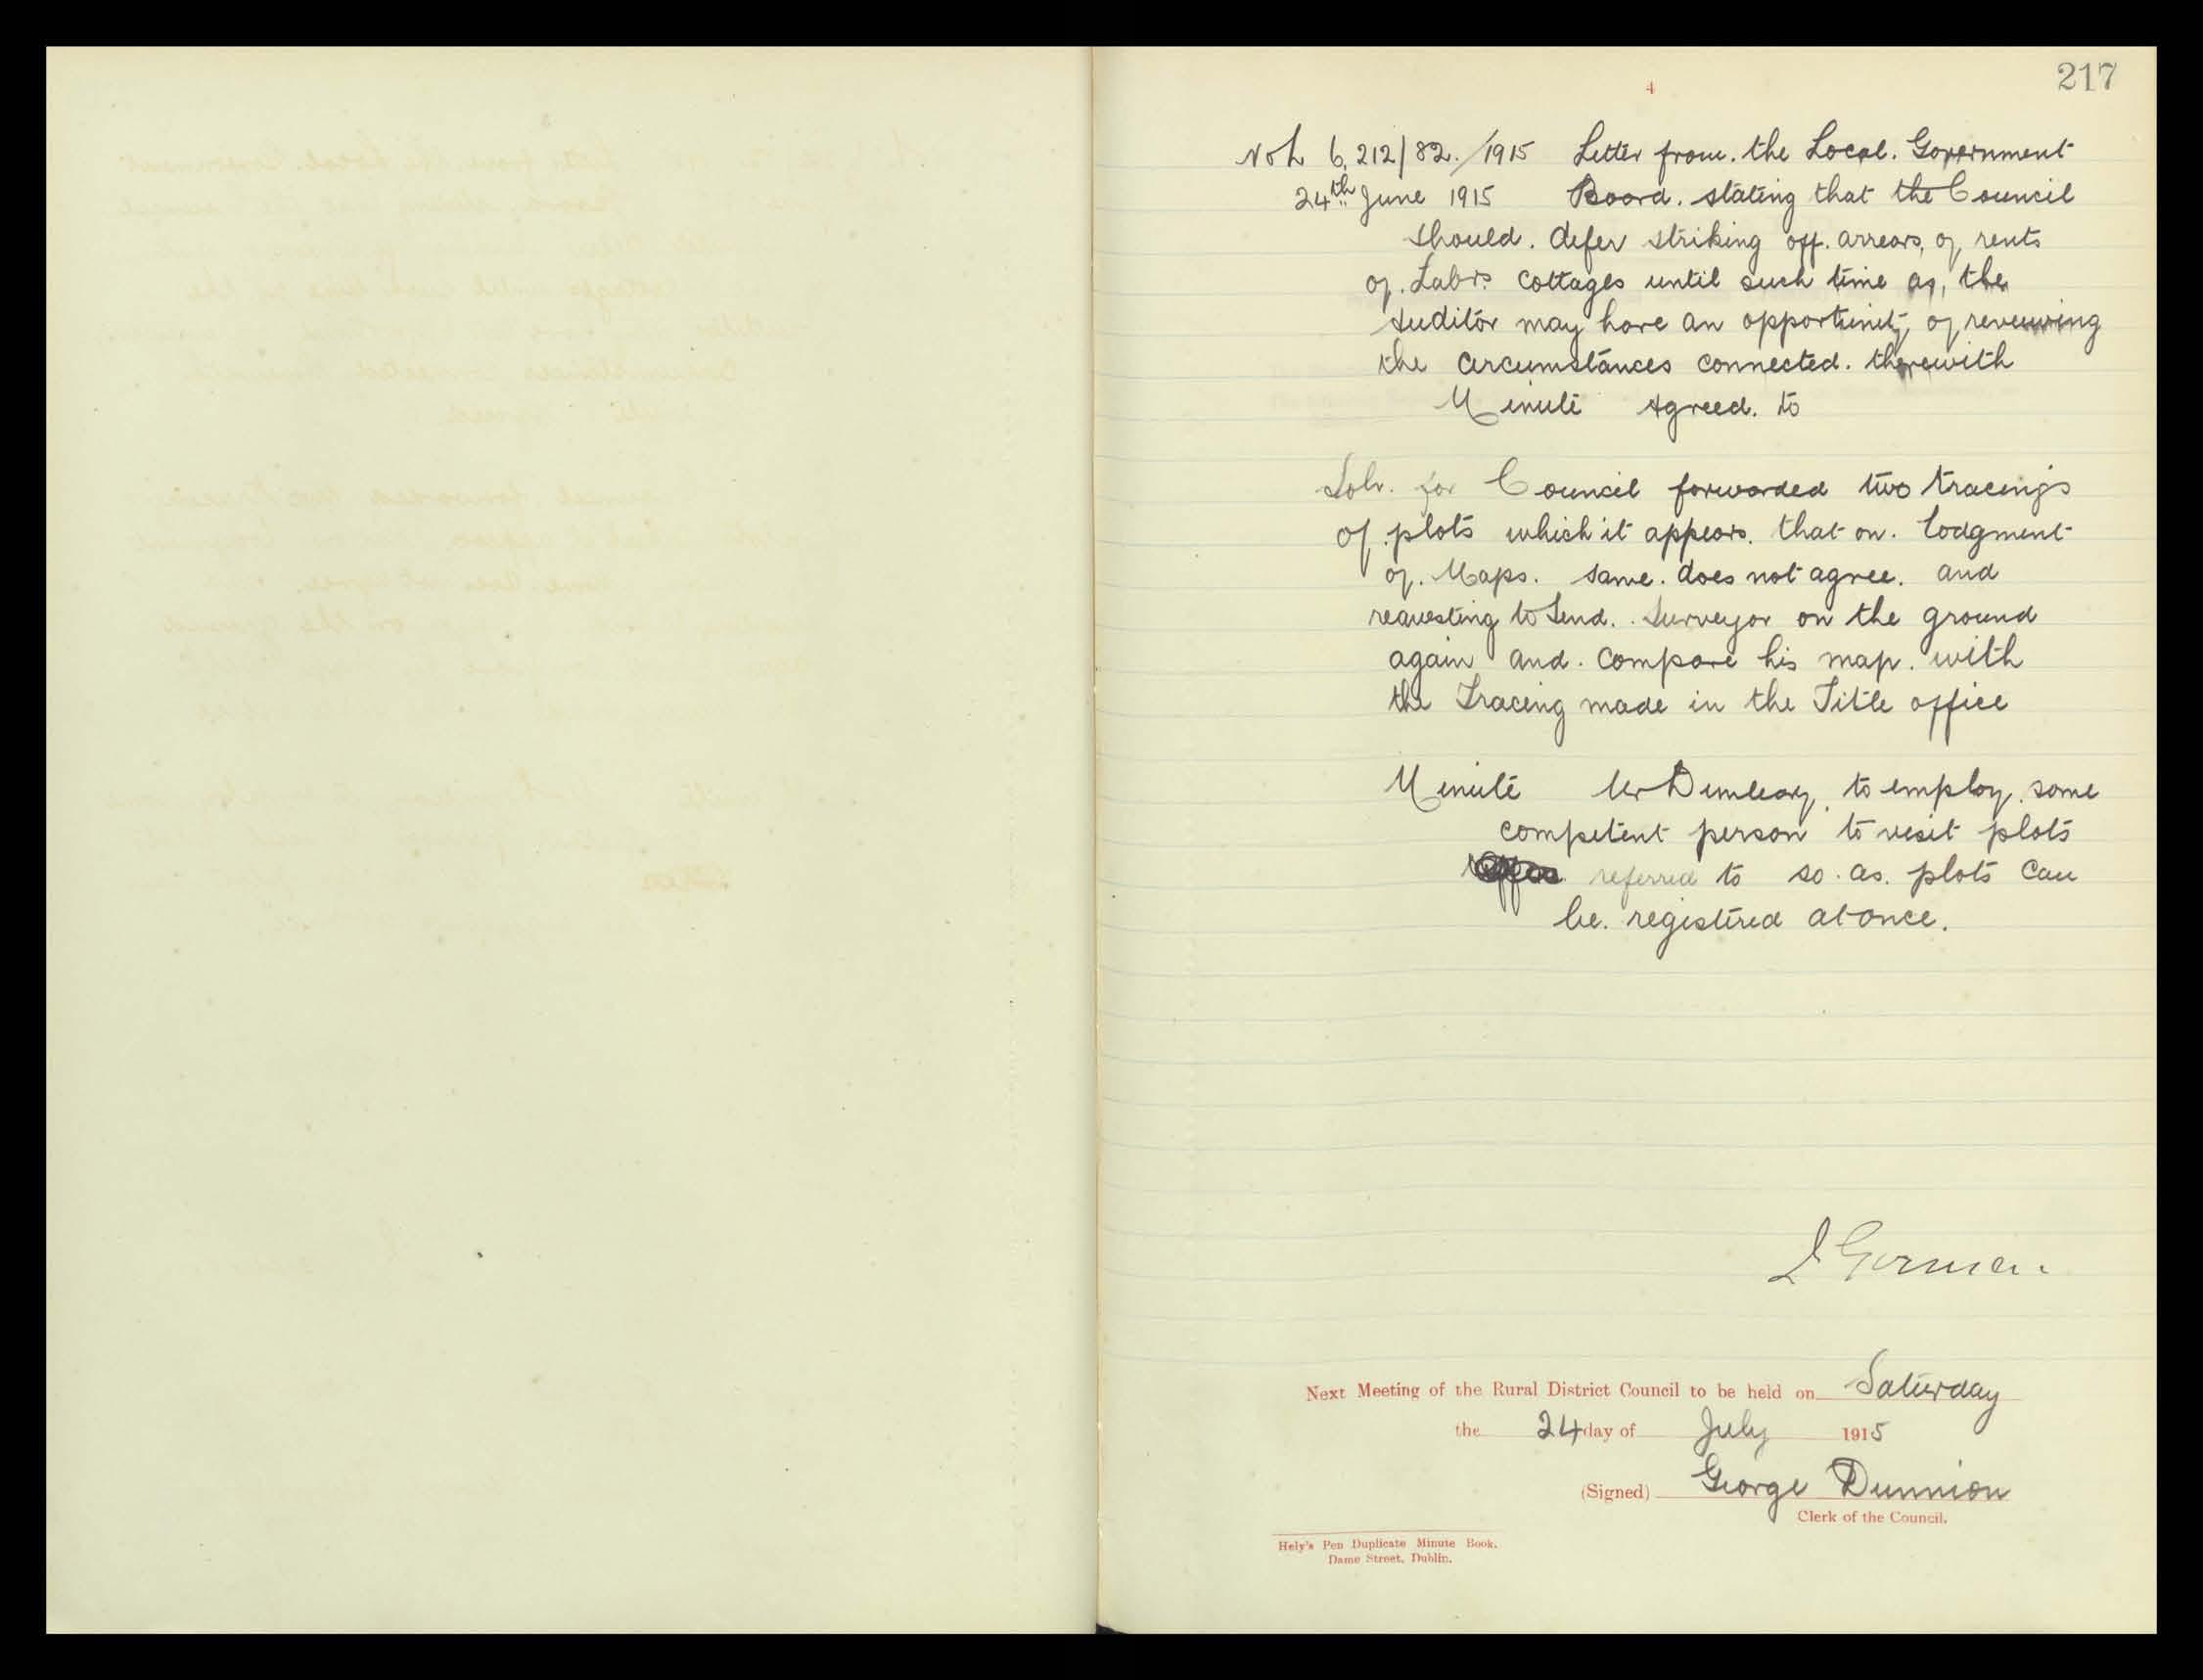 217
4
No L 6,212/82./1915 Letter from. the Local. Government
24th June 1915 Board. stating that the Council
should. defer striking off. arrears, of rents
of. Labrs. Cottages until such time as, the
Auditor may have an opportunity of reveiwing
the circumstances connected. therewith
Minute Agreed. to
Solr. for Council forwarded two tracings
of plots which it appears. that on. lodgment
of. Maps. same. does not agree. and
requesting to send. Surveyor on the ground
again and. compare his map. with
the Tracing made in the Title office
Minute Mr Dunleavy, to employ. some
competent person to visit plots
referred to so. as. plots can
be. registered at once.
Gorman
Next Meeting of the Rural District Council to be held on Saturday
the 24 day of July 1915
(Signed) George Dunnion
Clerk of the Council.
Hely's Pen Duplicate Minute Book.
Dame Street, Dublin.